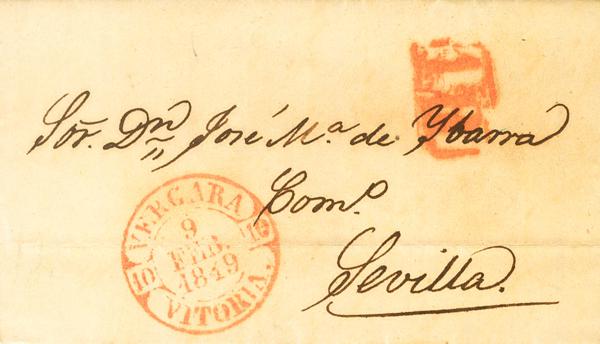 Sor. Dn José Ma. de Ybarra
Como.
Sevilla.
VERGARA
10 10
9
FEB.
1849
VITORIA.